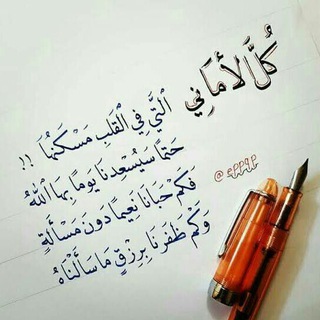 كُلَّ الأَمَانِي الَّتِي فِي الْقَلْبِ مَسْكَنُهَا !!
حَتْمًا سَيُسْعِدُنَا يَوْمًا بِهَا اللهُ
فَكَمْ حَبَانَا نَعِيمًا دُونَ مَسْأَلَةٍ
وَكَمْ ظَفَرنَا بِرِزْقٍ مَا سَأَلْنَاهُ